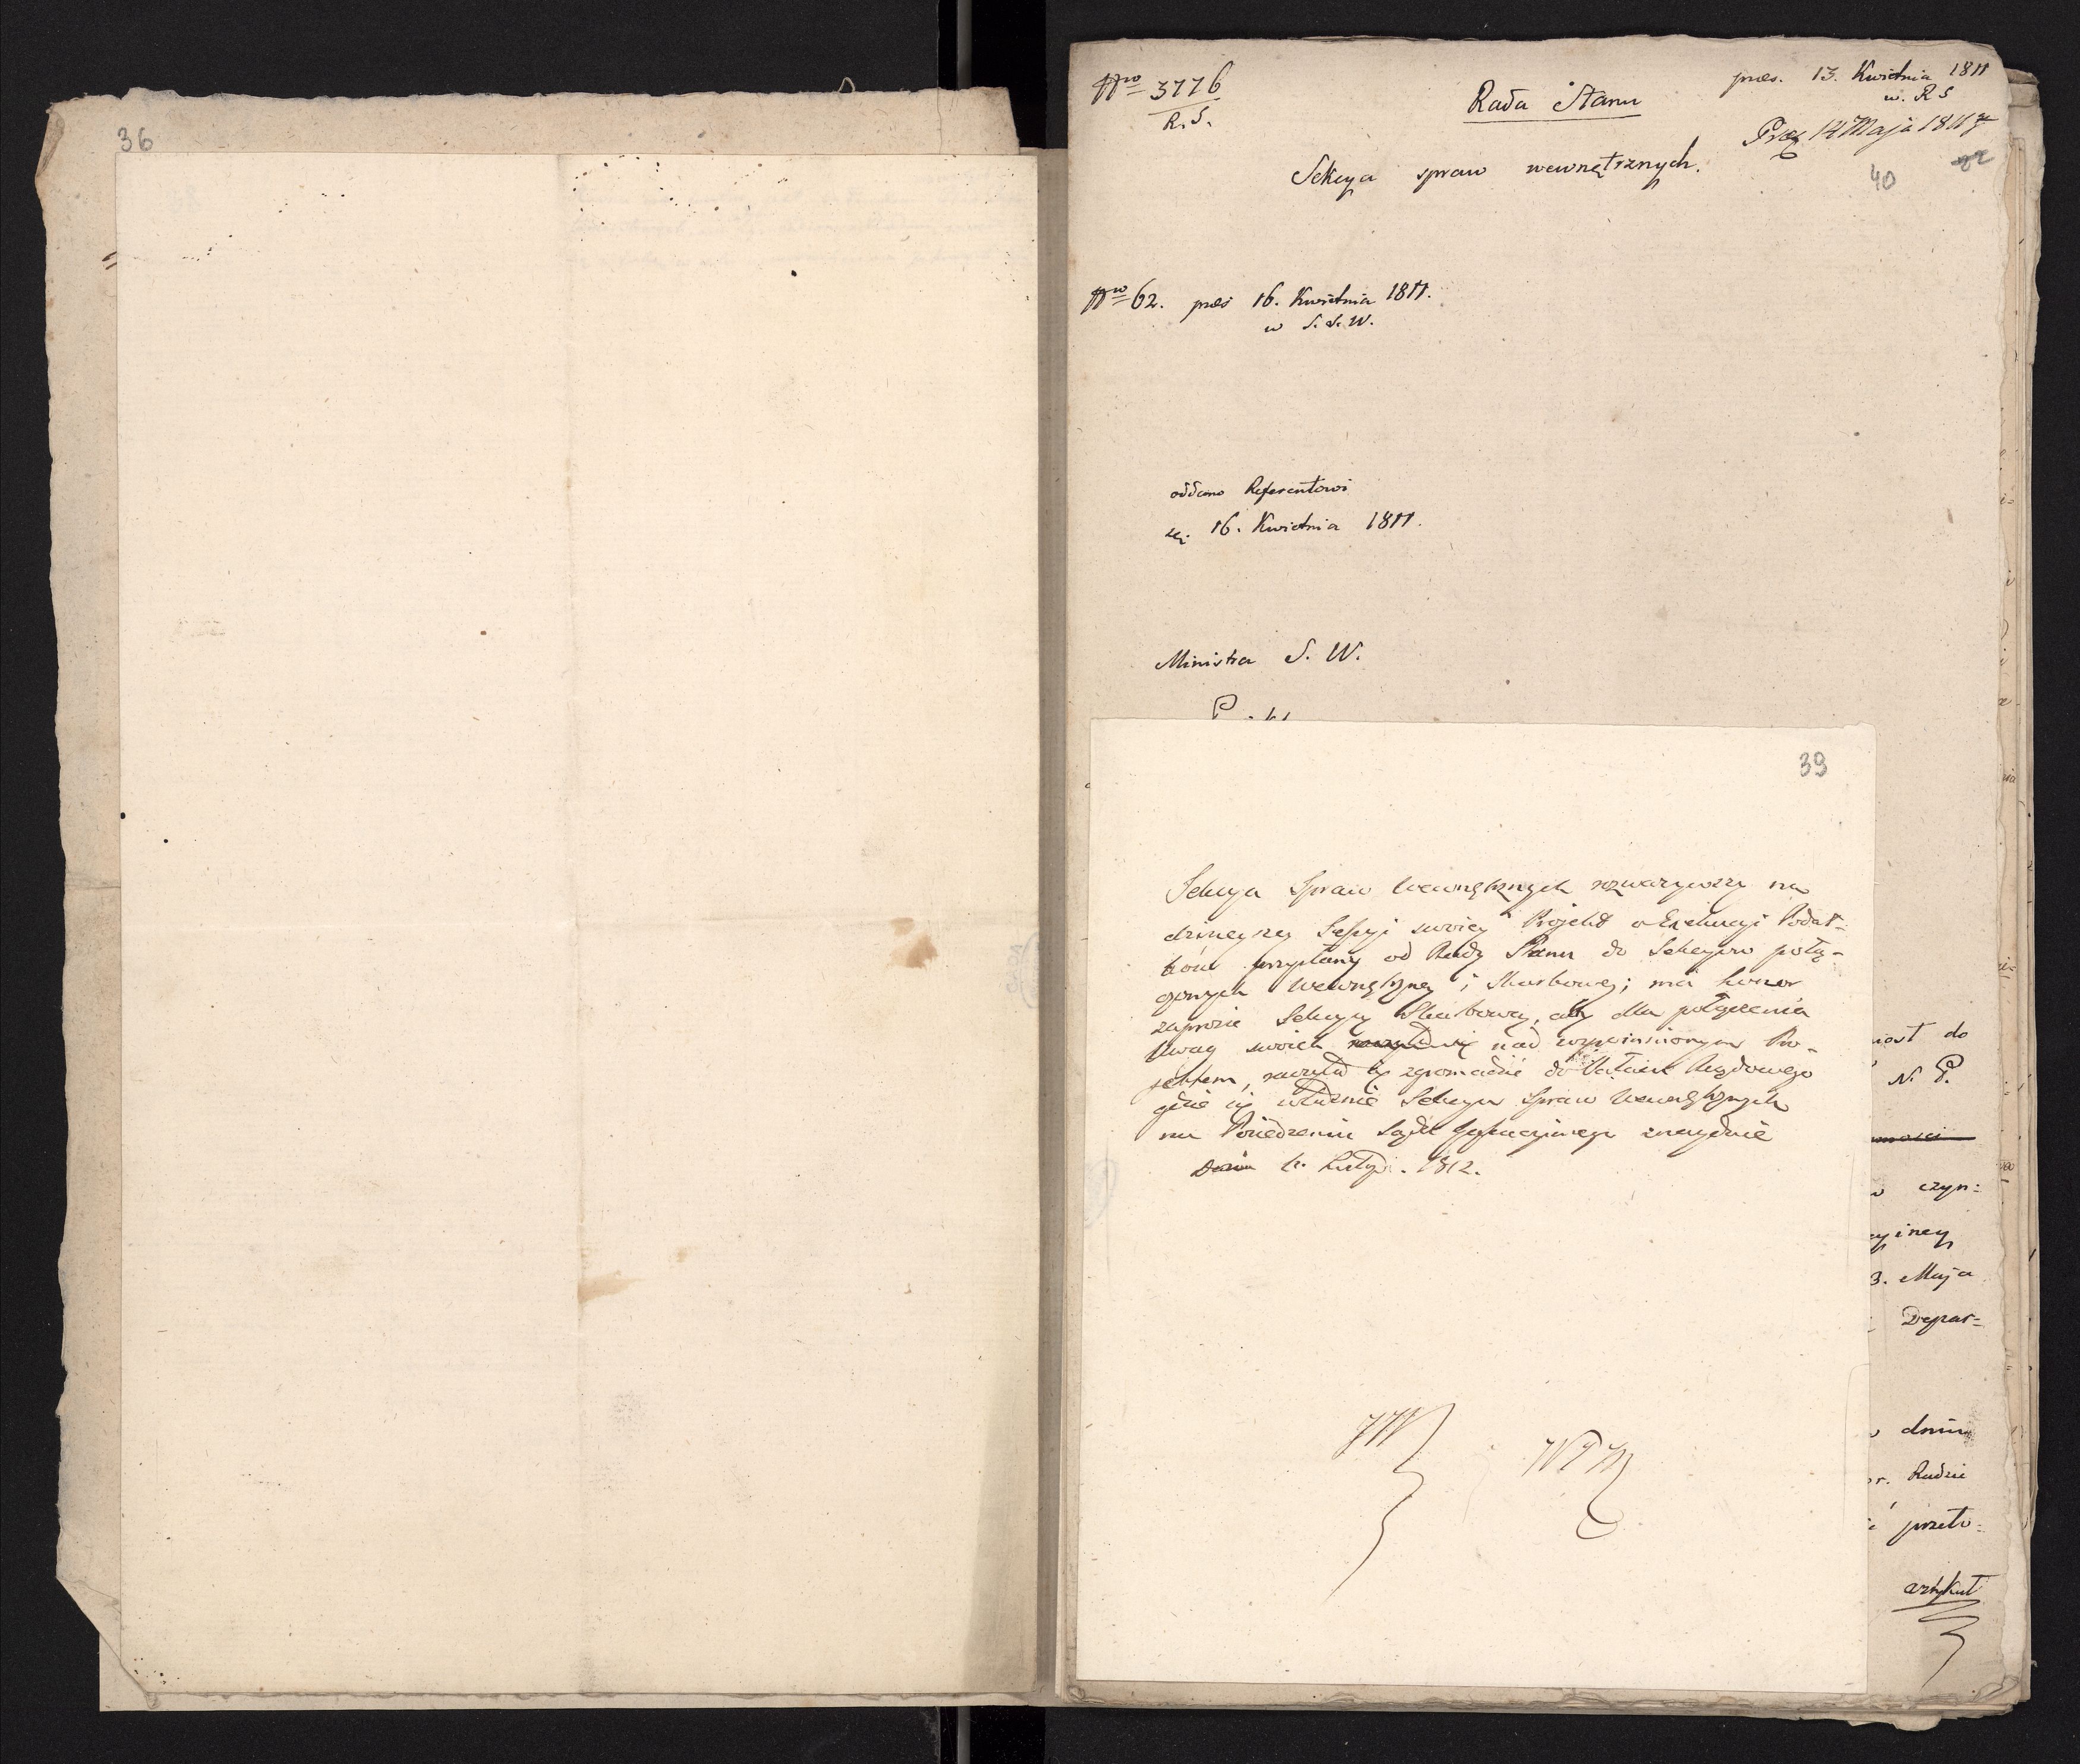 36
Nro 3776
R. S.
Rada Stanu
præs. 13. Kwietnia 1811
w. R S
Præs 14 Maja 1811
40
Sekcya spraw wewnętrznych.
Nro 62. præs 16. Kwietnia 1811.
w S. S. W.
oddano Referentowi
16. Kwietnia 1811.
Ministra S. W.
39
Sekcya Spraw Wewnętrznych rozważywszy na
dzisieyszey Sessyi swoiey Projekt o Exekucyi Podat-
ków przysłany od Rady Stanu do Sekcyow połą-
czonych Wewnętrzney i Skarbowey; ma honor
zaprosić Sekcyą Skarbową, aby dla połączenia
Uwag swoich nad wspomnionym Pro-
jektem, raczyła się zgromadzić do Pałacu Rządowego
gdzie się właśnie Sekcya Spraw Wewnętrznych
na Posiedzeniu Sądu Kassacyjnego znayduie
Lutego. 1812.
do
N. P.
czyn:
3. Maja
Depar=
dniu
Radzie
przeto=
artykuł